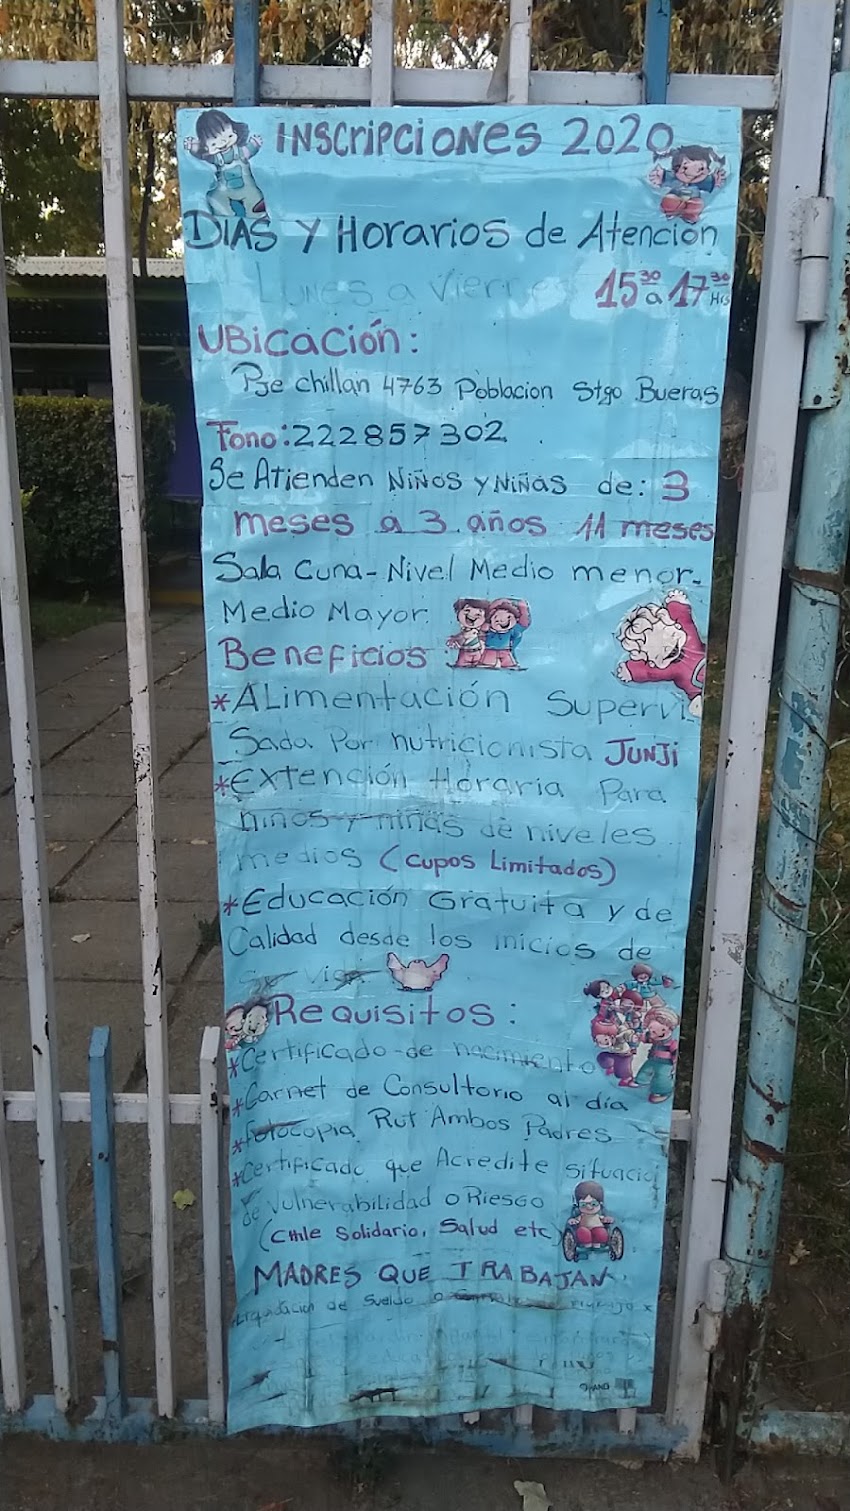 INSCRIPCIONES 2020
DIAS Y HORARIOS de Atención
LUNES a Viernes 15³⁰ a 17³⁰ Hrs
UBICACIÓN:
Pje chillan 4763 Poblacion Stgo Bueras
Fono: 222857302
Se Atienden Niños y Niñas de: 3
meses a 3 años 11 meses
Sala Cuna - Nivel Medio menor -
Medio Mayor.
Beneficios :
*ALimentación Supervi
Sada Por nutricionista JUNJi
*Extención Horaria Para
niños y niñas de niveles
medios (cupos Limitados)
*Educación Gratuita y de
Calidad desde los inicios de
Requisitos :
*Certificado de nacimiento
*Carnet de Consultorio al día
*Fotocopia Rut Ambos Padres
*Certificado que Acredite situació
de Vulnerabilidad o Riesgo
(CHile Solidario, Salud etc)
MADRES QUE TRABAJAN
Liquidación de Sueldo o